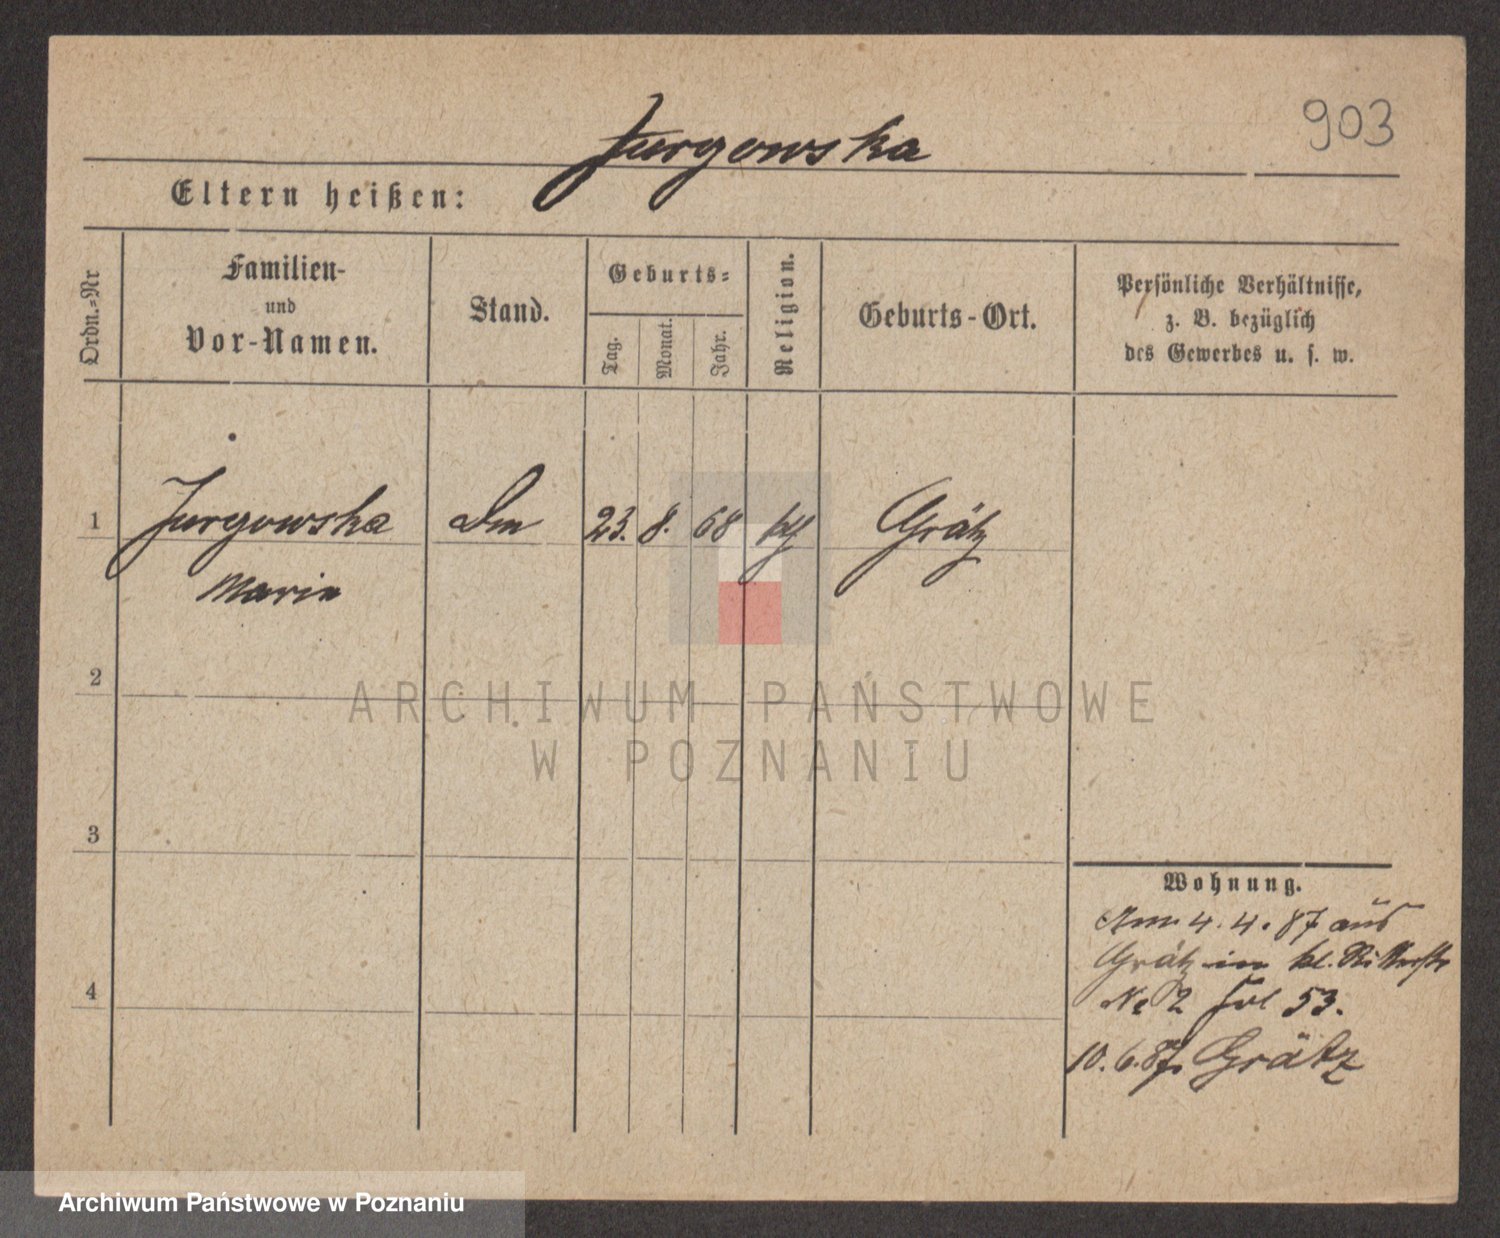 903
Jurgowska
Eltern heißen:
Ordn.-Nr
Familien-
und
Vor-Namen.
Stand.
Geburts-
Tag.
Monat.
Jahr.
Religion.
Geburts-Ort.
Persönliche Verhältnisse,
z. B. bezüglich
des Gewerbes u. s. w.
1 Jurgowska 23. 8. 68 Grätz
Marie
2
ARCHIWUM PAŃSTWOWE
W POZNANIU
3
Wohnung.
4. 4. 87 aus
Grätz in kl. Ritterstr
No 2 53.
4
10. 6. 87. Grätz
Archiwum Państwowe w Poznaniu